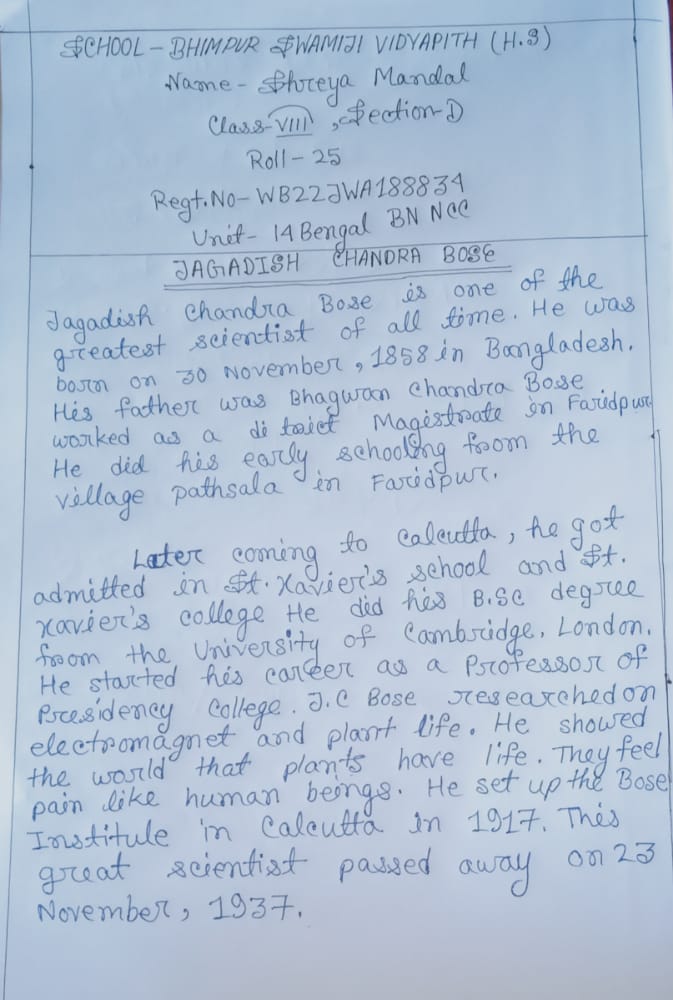 SCHOOL - BHIMPUR SWAMIJI VIDYAPITH (H.S)
Name - Shreya Mandal
Class-VIII, Section-D
Roll - 25
Regt.No- WB22JWA188834
Unit- 14 Bengal BN NCC
JAGADISH CHANDRA BOSE
Jagadish Chandra Bose is one of the
greatest scientist of all time. He was
born on 30 November, 1858 in Bangladesh.
His father was Bhagwan Chandra Bose
worked as a di trict Magistrate in Faridpur
He did his early schooling from the
village pathsala in Faridpur.
Later coming to Calcutta, he got
admitted in St. Xavier's school and St.
Xavier's college He did his B.SC degree
from the University of Cambridge, London.
He started his career as a Professor of
Presidency College. J.C Bose researched on
electromagnet and plant life. He showed
the world that plants have life. They feel
pain like human beings. He set up the Bose
Institule in Calcutta in 1917. This
great scientist passed away on 23
November, 1937.